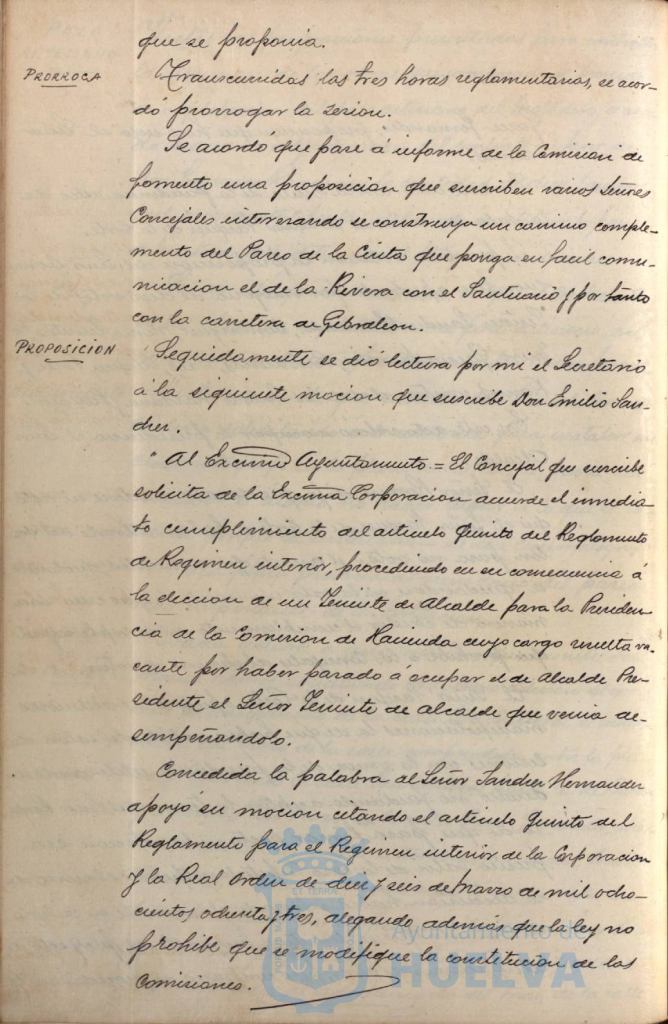 que se proponia.
PRORROGA
Transcurridas las tres horas reglamentarias, se acor-
dó prorrogar la sesion.
Se acordó que pase á informe de la Comision de
fomento una proposicion que suscriben varios Señores
Concejales interesando se construya un camino comple-
mento del Paseo de la Cinta que ponga en facil comu-
nicacion el de la Rivera con el Santuario y por tanto
con la carretera de Gibraleon.
PROPOSICION
Seguidamente se dió lectura por mi el Secretario
á la siguiente mocion que suscribe Don Emilio San-
chez.
"Al Excmo Ayuntamiento = El Concejal que suscribe
solicita de la Excma Corporacion acuerde el inmedia-
to cumplimiento del articulo Quinto del Reglamento
de Regimen interior, procediendo en su consecuencia á
la eleccion de un Teniente de Alcalde para la Presiden-
cia de la Comision de Hacienda cuyo cargo resulta va-
cante por haber pasado á ocupar el de Alcalde Pre-
sidente el Señor Teniente de Alcalde que venia de-
sempeñandolo.
Concedida la palabra al Señor Sanchez Hernandez
apoyó su mocion citando el articulo Quinto del
Reglamento para el Regimen interior de la Corporacion
y la Real orden de diez y seis de Marzo de mil ocho-
cientos ochenta y tres, alegando además que la ley no
prohibe que se modifique la constitucion de las
Comisiones.
Ayuntamiento de
HUELVA